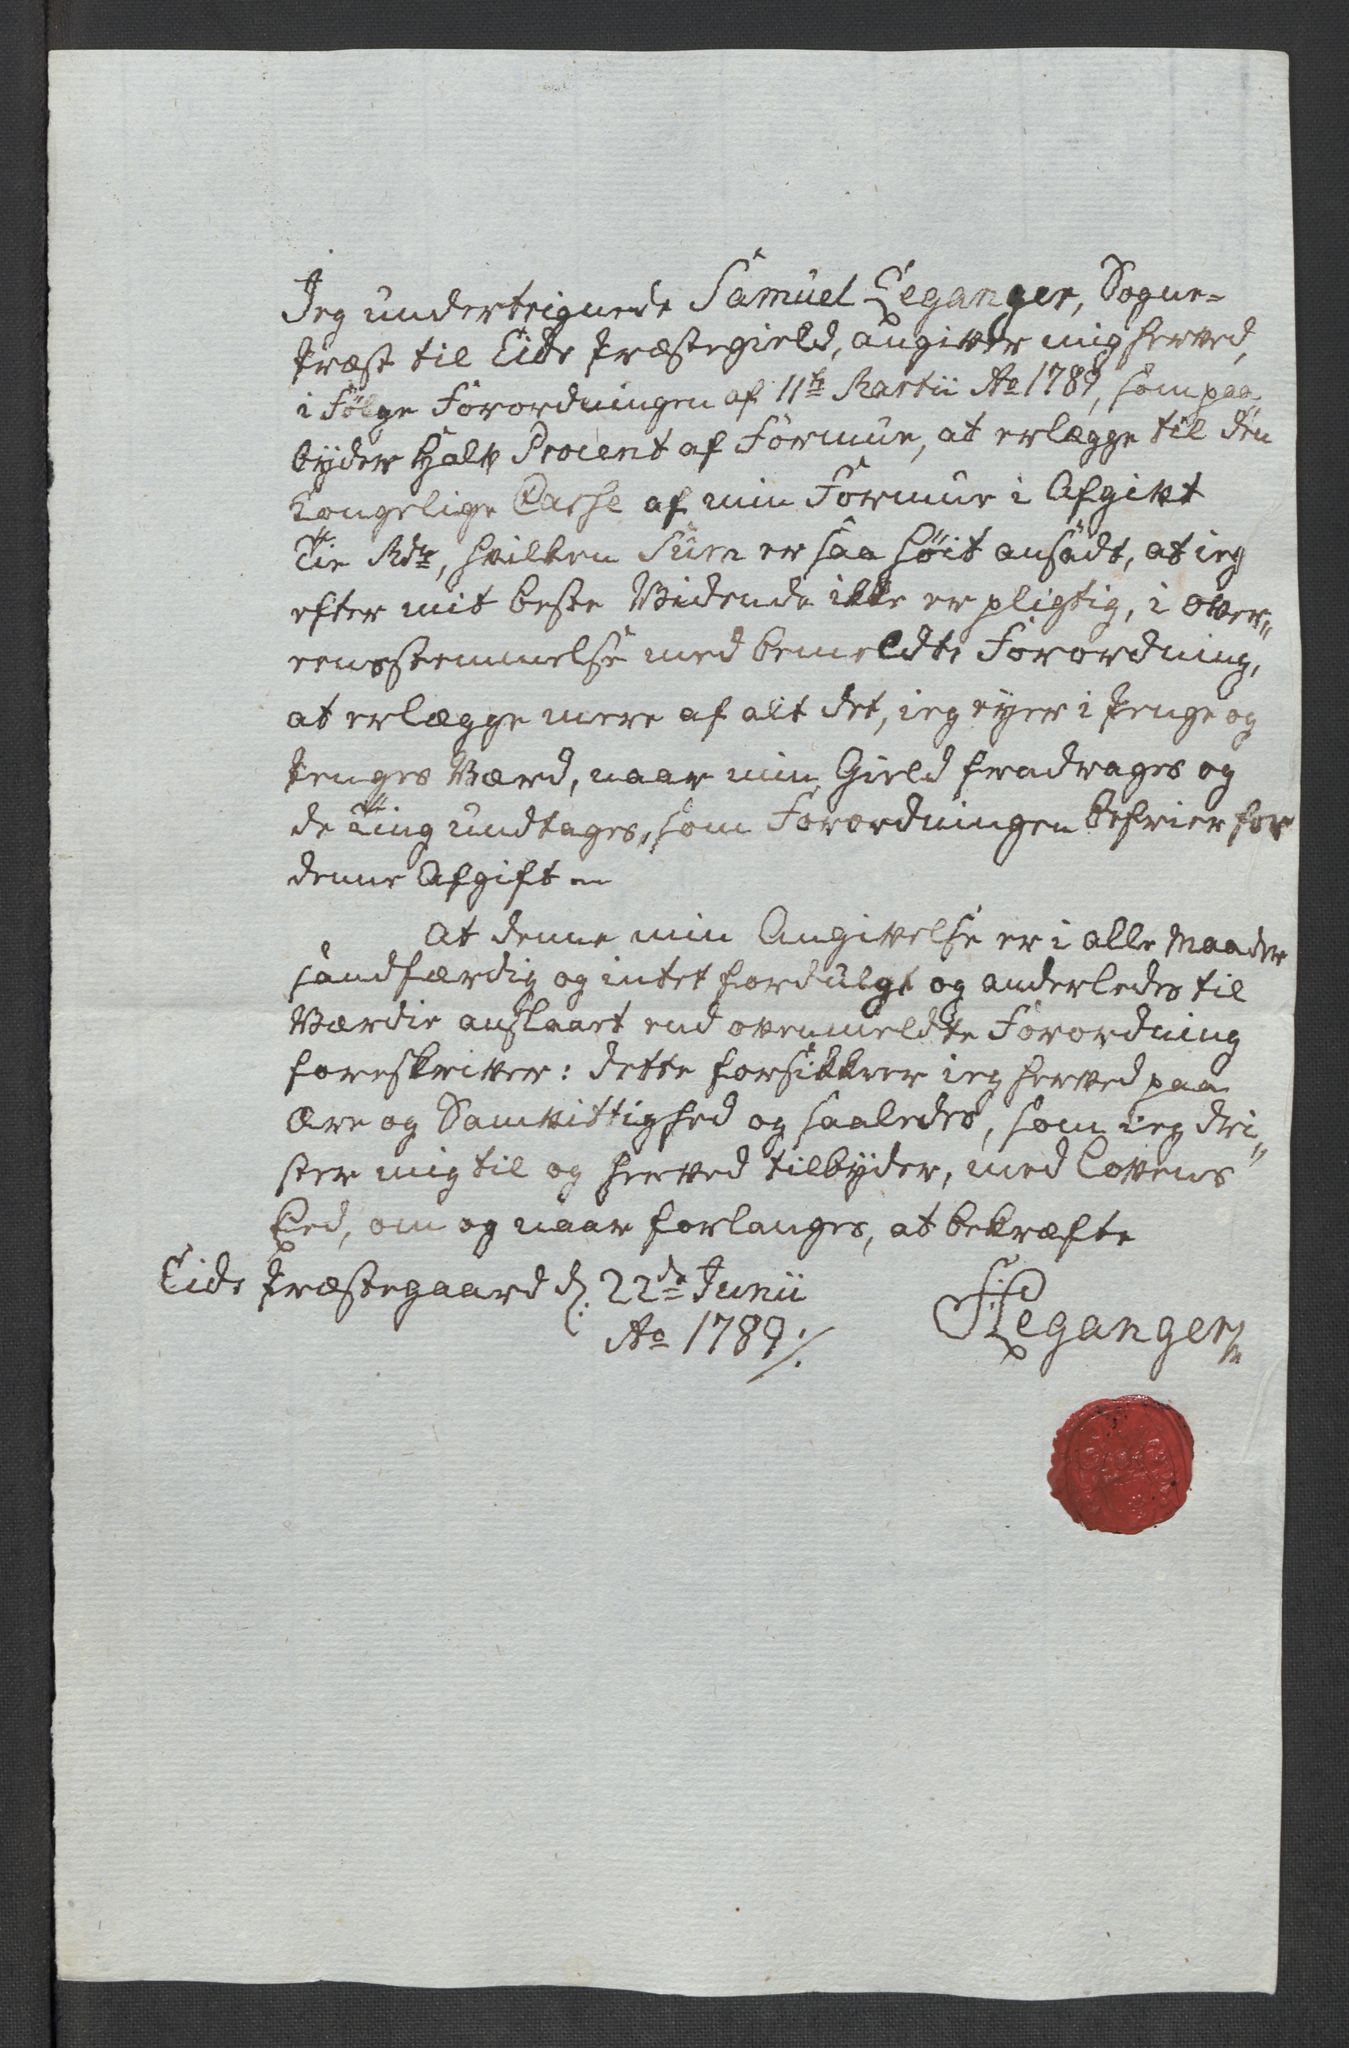 Jeg underteignede Samuel Leganger, Sogne-
Præst til Eids Præstegield, angiver mig herved,
i Følge Forordningen af 11te Martii Ao 1789, som paa
byder Halv Procent af Formue, at erlægge til den
Kongelige Casse af min Formue i Afgivt
Tie Rdlr, hvilken Sum er saa høit ansadt, at ieg
efter mit beste Vidende ikke er pligtig, i Over„
eensstemmelse med bemeldte Forordning,
at erlægge mere af alt det, ieg eyer i Penge og
Penges Værd, naar min Gield fradrages og
de Ting undtages, som Forordningen befrier for
denne Afgift
At denne min Angivelse er i alle Maader
sandfærdig og intet fordulgt og anderledes til
Værdie anslaaet end ovenmeldte Forordning
foreskriver: dette forsikkrer ieg herved paa
Ære og Samvittighed og saaledes, som ieg dri„
ster mig til og herved tilbyder, med Lovens
Eed, om og naar forlanges, at bekræfte
Eids Præstegaard d: 22de Junii
Ao 1789 ./.
SLeganger